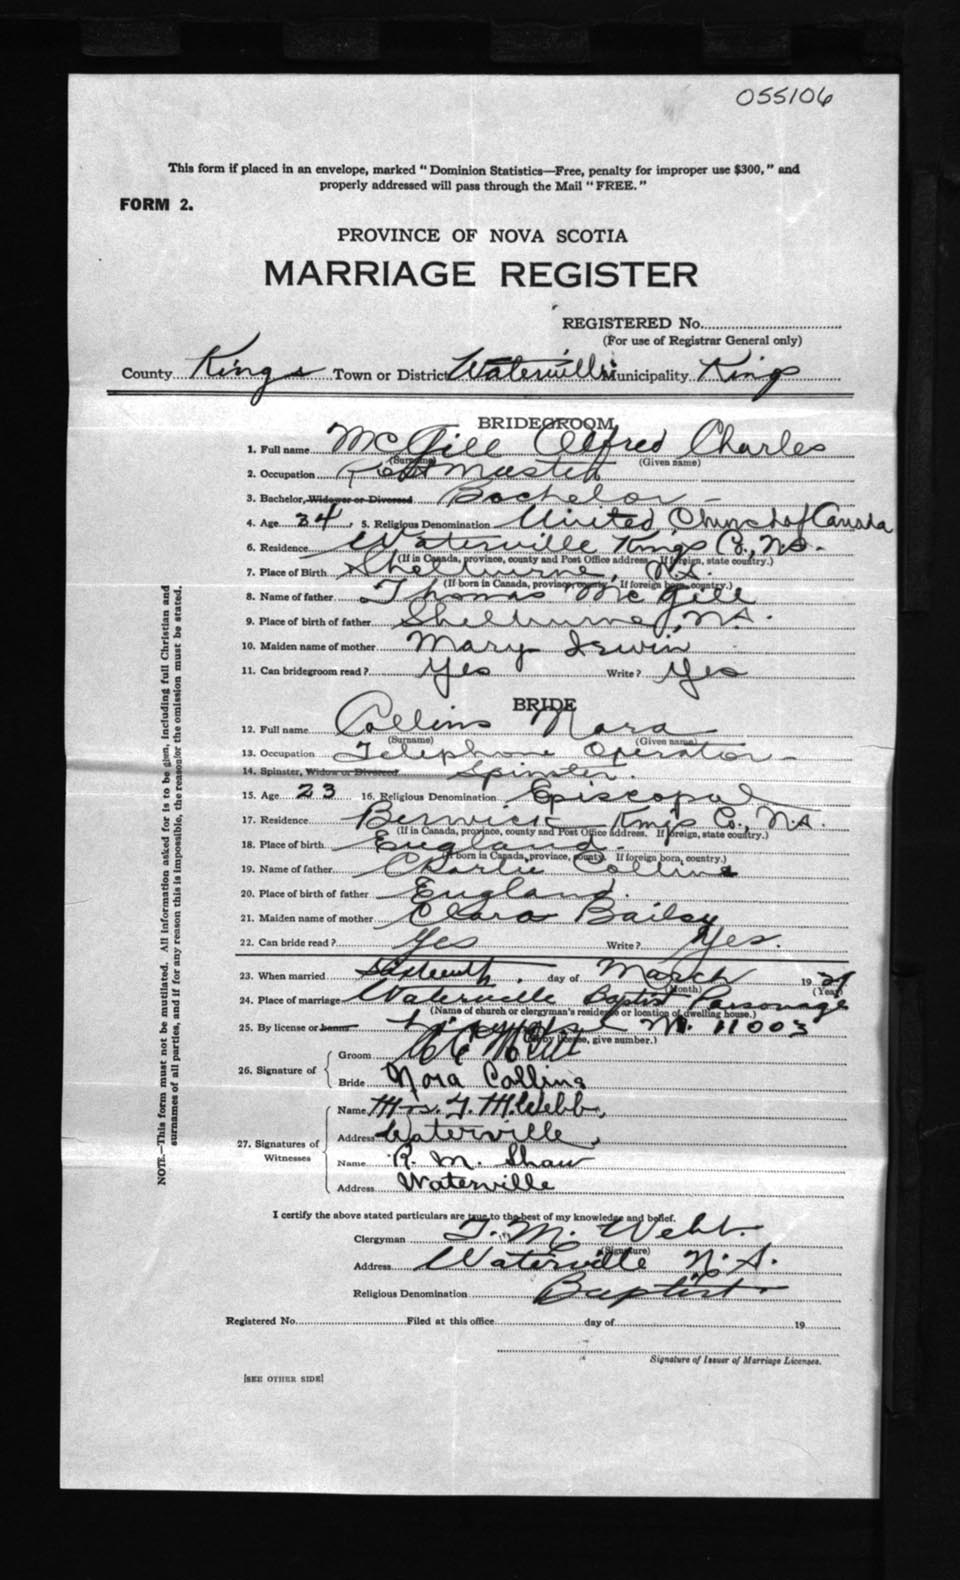 055106
This form if placed in an envelope, marked "Dominion Statistics—Free, penalty for improper use $300," and
properly addressed will pass through the Mail "FREE."
FORM 2.
PROVINCE OF NOVA SCOTIA
MARRIAGE REGISTER
REGISTERED No.
(For use of Registrar General only)
County Kings Town or District Waterville Municipality Kings
BRIDEGROOM
1. Full name McGill Alfred Charles
(Surname) (Given name)
2. Occupation Post Master
3. Bachelor, Widower or Divorced Bachelor -
4. Age 34, 5. Religious Denomination United Church of Canada
6. Residence Waterville Kings Co., N.S.
(If in Canada, province, county and Post Office address. If foreign, state country.)
7. Place of Birth Shelburne, N.S.
(If born in Canada, province, county. If foreign born, country.)
8. Name of father Thomas McGill
9. Place of birth of father Shelburne, N.S.
10. Maiden name of mother Mary Irwin
11. Can bridegroom read? Yes Write? Yes
BRIDE
12. Full name Collins Nora
(Surname) (Given name)
13. Occupation Telephone Operator -
14. Spinster, Widow or Divorced Spinster.
15. Age 23 16. Religious Denomination Episcopal
17. Residence Berwick Kings Co., N.S.
(If in Canada, province, county and Post Office address. If foreign, state country.)
18. Place of birth England.
(If born in Canada, province, county. If foreign born, country.)
19. Name of father Charlie Collins
20. Place of birth of father England.
21. Maiden name of mother Clara Bailey
22. Can bride read? Yes Write? Yes.
23. When married Sixteenth day of March 19
(Month) (Year)
24. Place of marriage Waterville Baptist Parsonage
(Name of church or clergyman's residence or location of dwelling house.)
25. By license or banns 11003
(If by license, give number.)
26. Signature of
Groom A C McGill
Bride Nora Collins
27. Signatures of Witnesses
Name Mrs. T. M. Webb,
Address Waterville,
Name R. M. Shaw
Address Waterville
I certify the above stated particulars are true to the best of my knowledge and belief.
Clergyman T. M. Webb.
(Signature)
Address Waterville N.S.
Religious Denomination Baptist.
Registered No. Filed at this office day of 19
Signature of Issuer of Marriage Licenses.
[SEE OTHER SIDE]
NOTE.—This form must not be mutilated. All information asked for is to be given, including full Christian and
surnames of all parties, and if for any reason this is impossible, the reason for the omission must be stated.